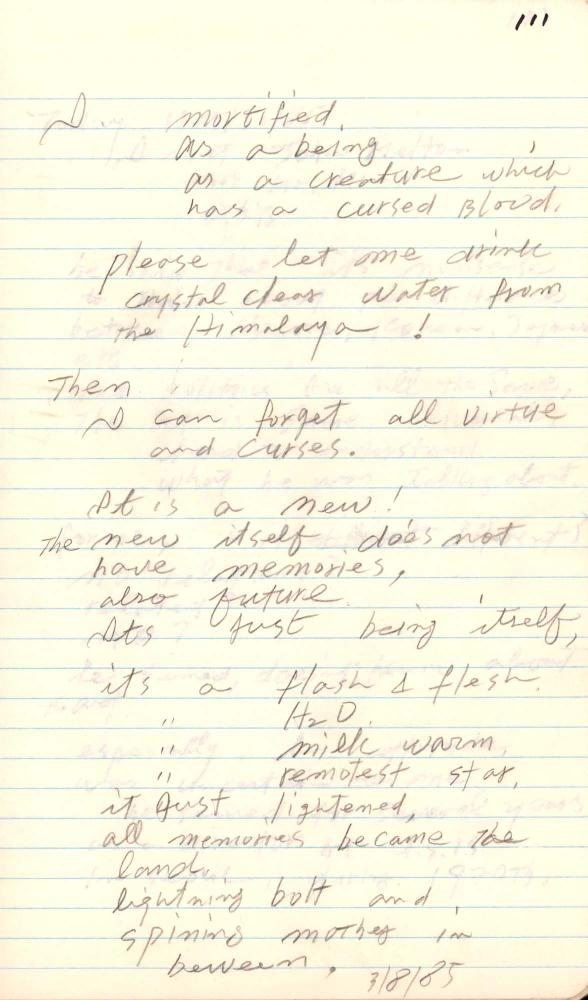 111
I mortified.
as a being
as a creature which
has a cursed Blood.
please let me drink
crystal clear water from
the Himalaya !
Then
I can forget all virtue
and curses.
It is a new!
The new itself does not
have memories,
also future.
Its just being itself,
it's a flash & flesh.
" H2O.
" milk warm,
" remotest star,
it just lightened,
all memories became the
land,
lightning bolt and
spining mother in
beween.
3/8/85